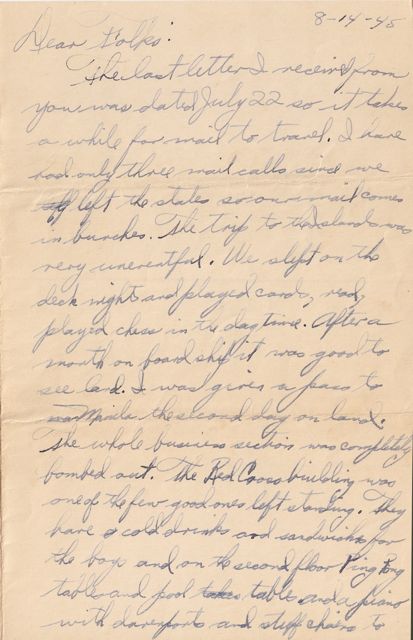 8-14-45
Dear Folks:
The last letter I received from
you was dated July 22 so it takes
a while for mail to travel. I have
had only three mail calls since we
left the states so our mail comes
in bunches. The trip to the Islands was
very uneventful. We slept on the
deck nights and played cards, read,
played chess in the daytime. After a
month on board ship it was good to
see land. I was given a pass to
Manila the second day on land.
The whole business section was completely
bombed out. The Red Cross building was
one of the few good ones left standing. They
have cold drinks and sandwiches for
the boys and on the second floor Ping Pong
tables and pool tables and a piano
with davenports and stuff chairs to